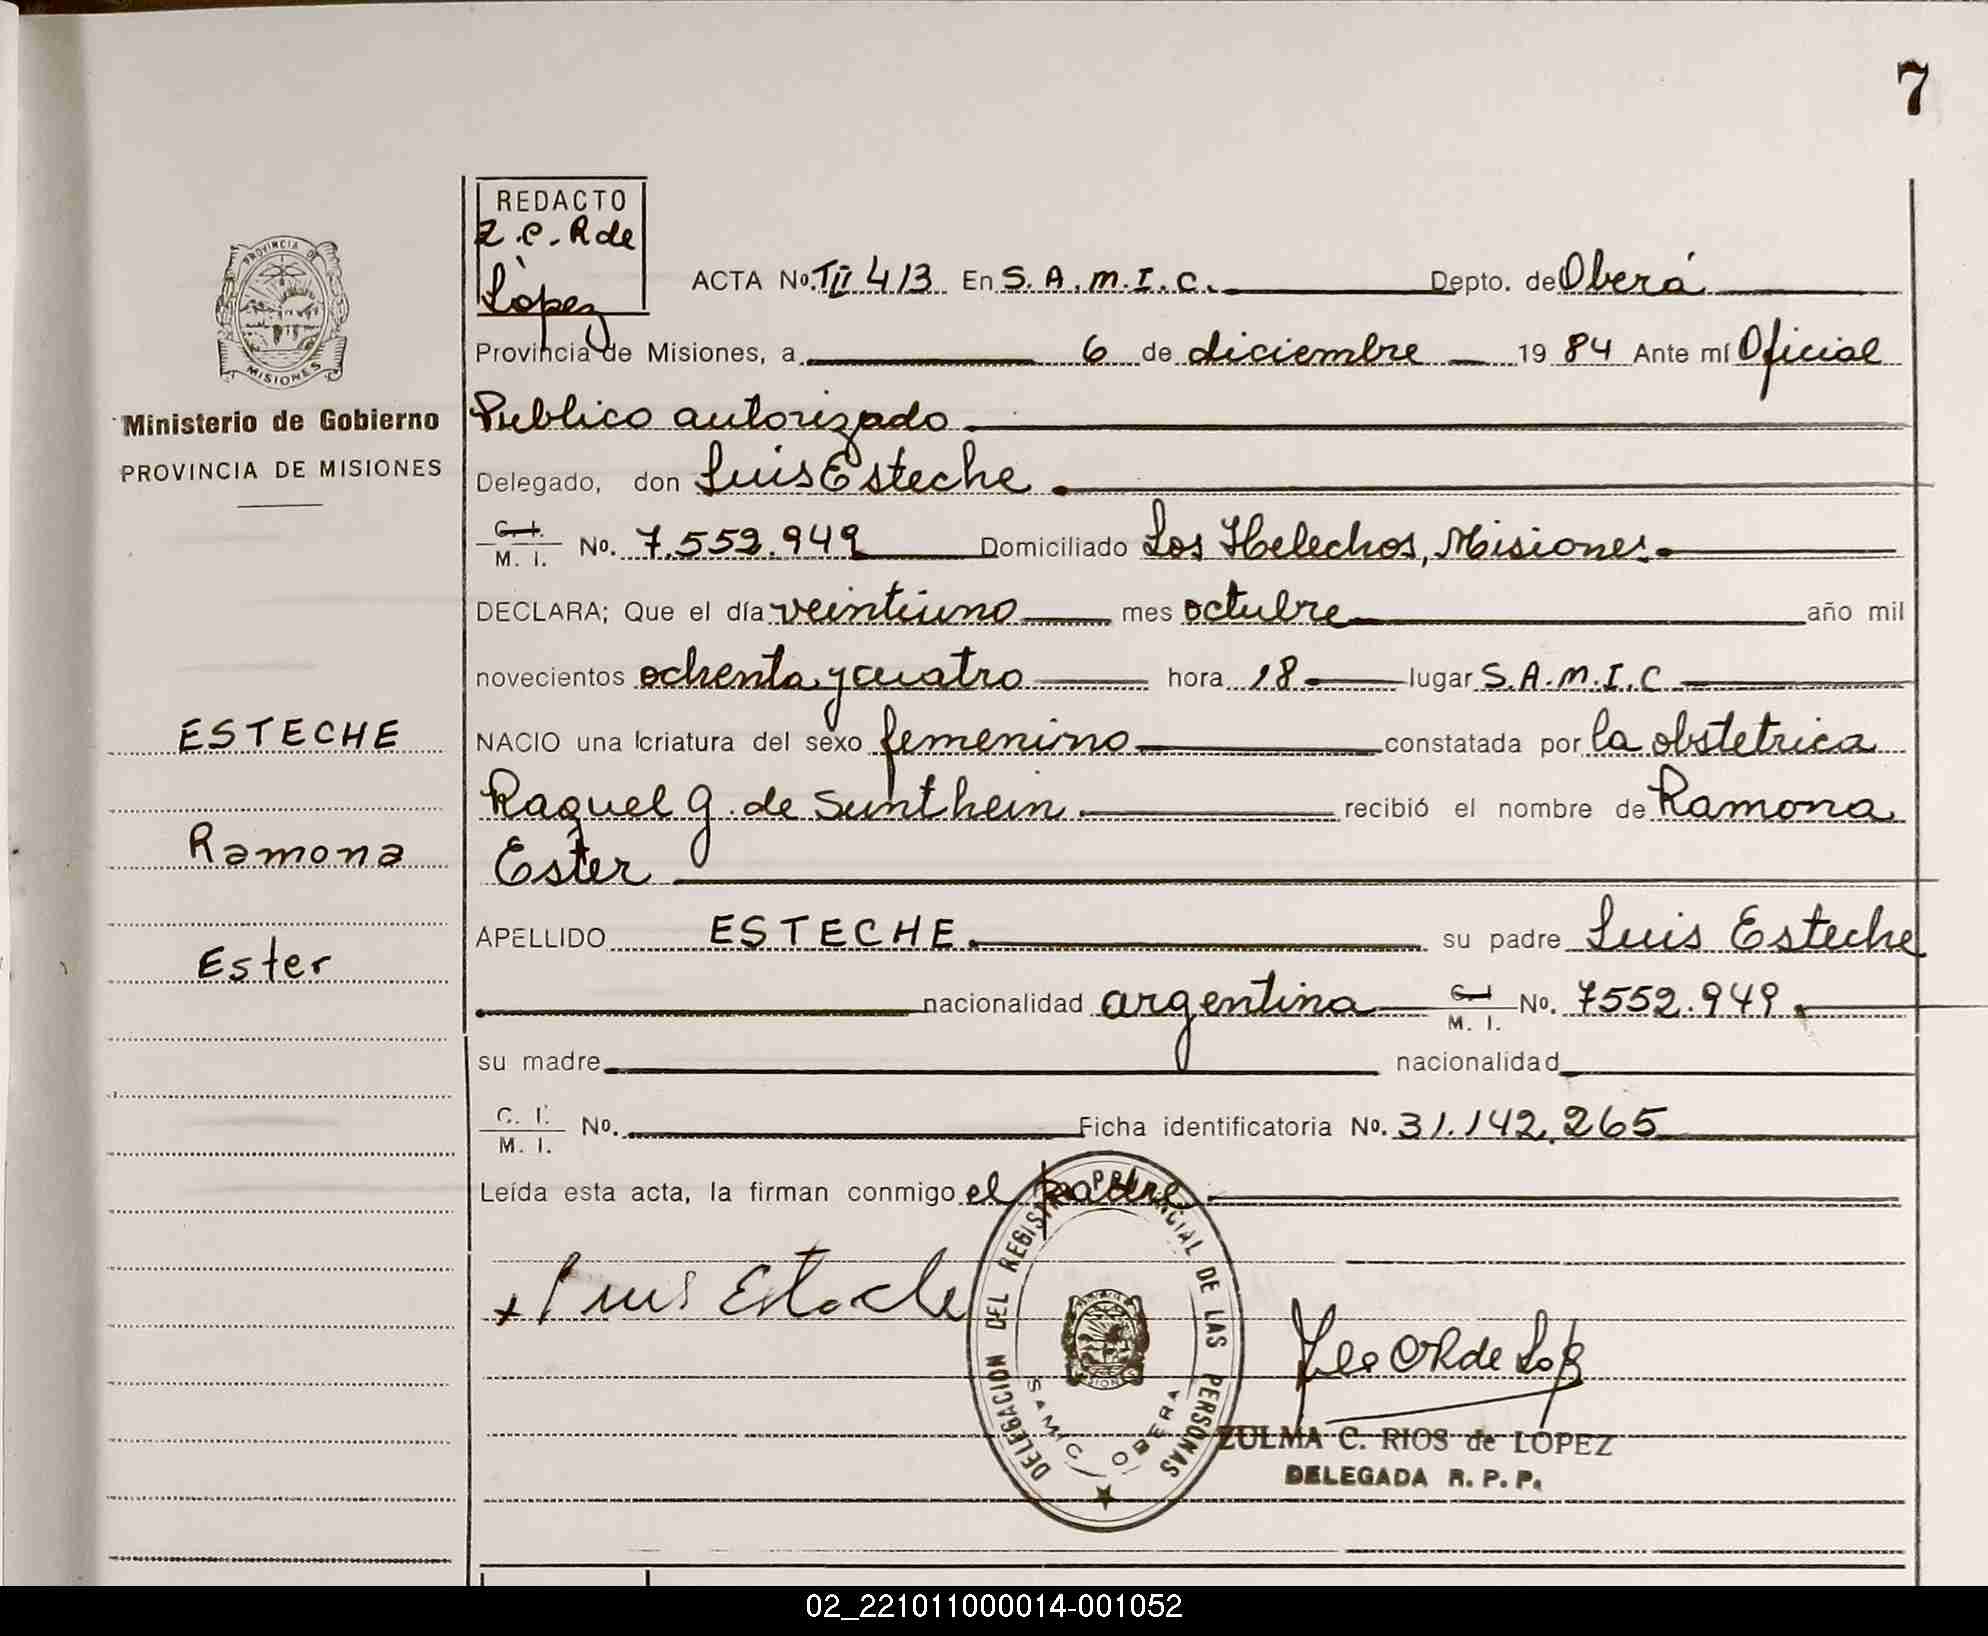 7
REDACTO
Z.C.R de
López
ACTA No. TII 413 En S.A.M.I.C. Depto. de Oberá
Provincia de Misiones, a 6 de diciembre 19 84 Ante mí Oficial
Publico autorizado
Delegado, don Luis Esteche
C. I. M. I. No. 7.552.949 Domiciliado Los Helechos, Misiones.
DECLARA; Que el día veintiuno mes octubre año mil
novecientos ochenta y cuatro hora 18 lugar S.A.M.I.C
NACIO una criatura del sexo femenino constatada por la obstetrica
Raquel G. de Sunthein recibió el nombre de Ramona
Ester
APELLIDO ESTECHE. su padre Luis Esteche
nacionalidad argentina C. I M. I. No. 7552.949.
su madre nacionalidad
C. I. M. I. No. Ficha identificatoria No. 31.142.265
Leída esta acta, la firman conmigo el padre
Luis Esteche
DELEGACION DEL REGISTRO PROVINCIAL DE LAS PERSONAS
SAMIC OBERA
ZULMA C. RIOS de LOPEZ
DELEGADA R. P. P.
PROVINCIA DE
MISIONES
Ministerio de Gobierno
PROVINCIA DE MISIONES
ESTECHE
Ramona
Ester
02_221011000014-001052